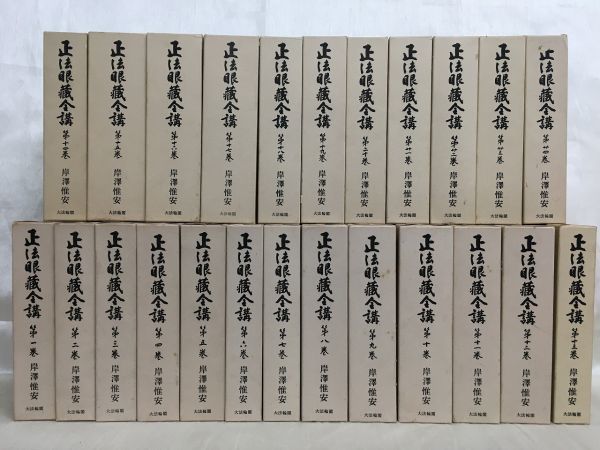 正法眼藏全講 第十四巻 岸澤惟安 大法輪閣
正法眼藏全講 第十五巻 岸澤惟安 大法輪閣
正法眼藏全講 第十六巻 岸澤惟安 大法輪閣
正法眼藏全講 第十七巻 岸澤惟安 大法輪閣
正法眼藏全講 第十八巻 岸澤惟安 大法輪閣
正法眼藏全講 第十九巻 岸澤惟安 大法輪閣
正法眼藏全講 第二十巻 岸澤惟安 大法輪閣
正法眼藏全講 第廿一巻 岸澤惟安 大法輪閣
正法眼藏全講 第廿二巻 岸澤惟安 大法輪閣
正法眼藏全講 第廿三巻 岸澤惟安 大法輪閣
正法眼藏全講 第廿四巻 岸澤惟安 大法輪閣
正法眼藏全講 第一巻 岸澤惟安 大法輪閣
正法眼藏全講 第二巻 岸澤惟安 大法輪閣
正法眼藏全講 第三巻 岸澤惟安 大法輪閣
正法眼藏全講 第四巻 岸澤惟安 大法輪閣
正法眼藏全講 第五巻 岸澤惟安 大法輪閣
正法眼藏全講 第六巻 岸澤惟安 大法輪閣
正法眼藏全講 第七巻 岸澤惟安 大法輪閣
正法眼藏全講 第八巻 岸澤惟安 大法輪閣
正法眼藏全講 第九巻 岸澤惟安 大法輪閣
正法眼藏全講 第十巻 岸澤惟安 大法輪閣
正法眼藏全講 第十一巻 岸澤惟安 大法輪閣
正法眼藏全講 第十二巻 岸澤惟安 大法輪閣
正法眼藏全講 第十三巻 岸澤惟安 大法輪閣